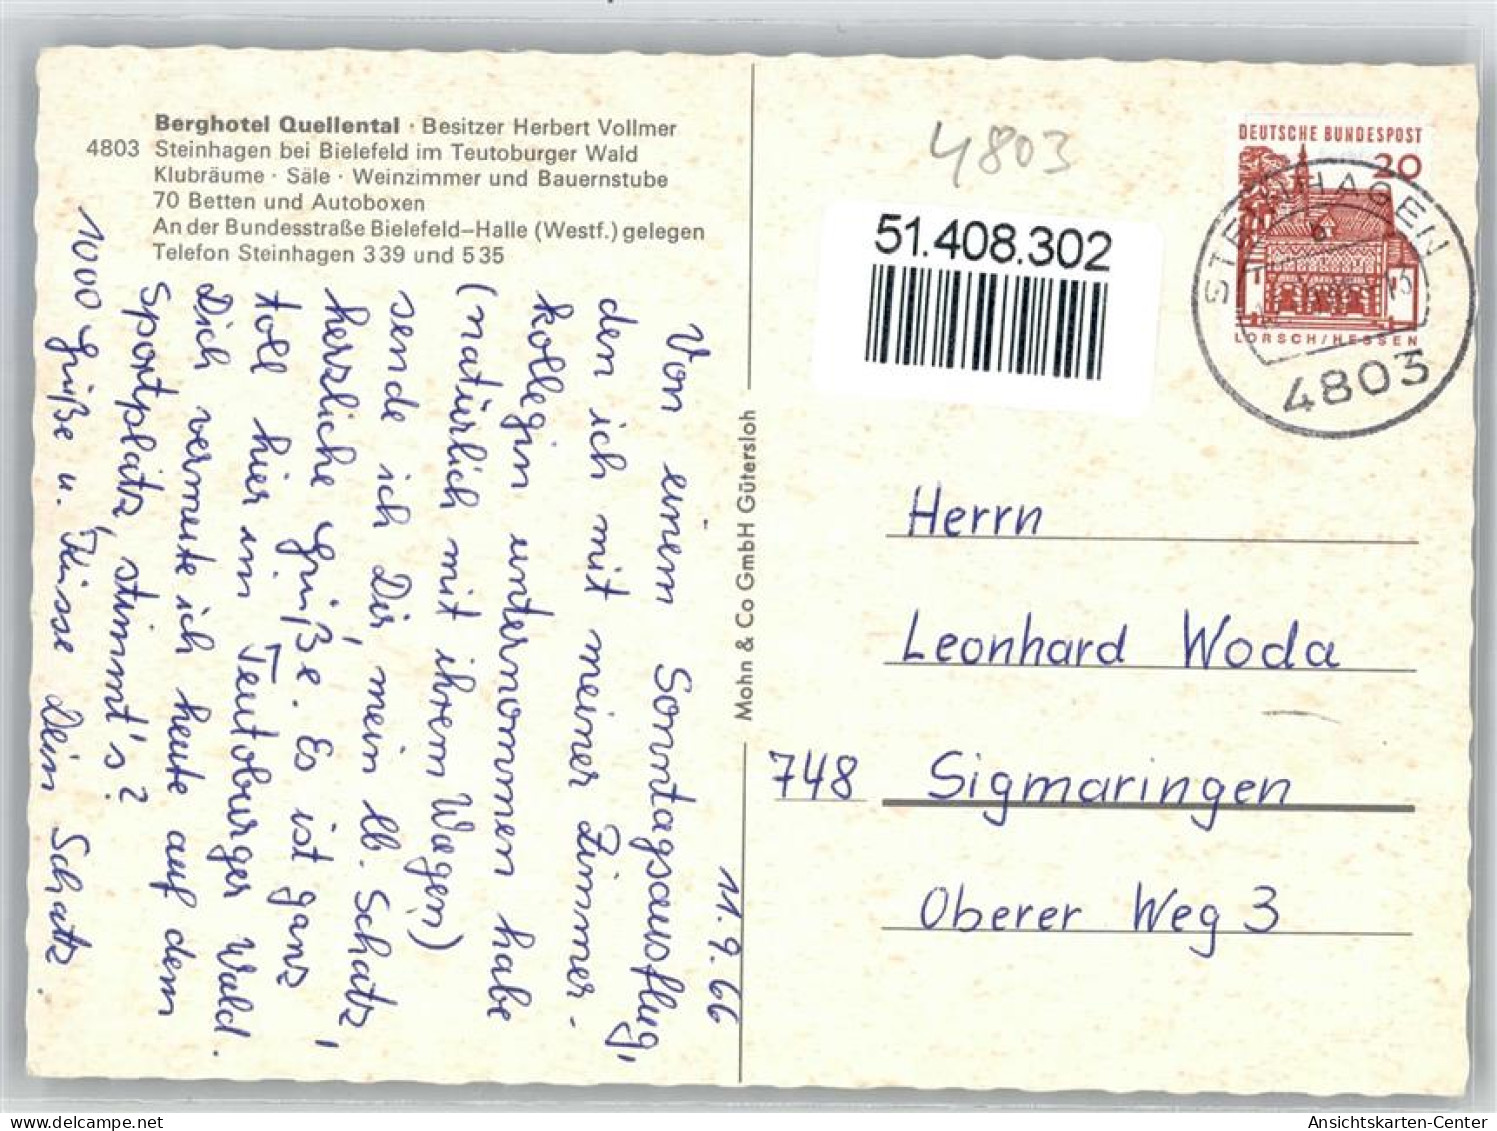 Berghotel Quellental · Besitzer Herbert Vollmer
4803 Steinhagen bei Bielefeld im Teutoburger Wald
Klubräume · Säle · Weinzimmer und Bauernstube
70 Betten und Autoboxen
An der Bundesstraße Bielefeld–Halle (Westf.) gelegen
Telefon Steinhagen 339 und 535
11.9.66
Von einem Sonntagsausflug,
den ich mit meiner Zimmer-
kollegin unternommen habe
(natürlich mit ihrem Wagen)
sende ich Dir, mein lb. Schatz,
herzliche Grüße. Es ist ganz
toll hier im Teutoburger Wald.
Dich vermute ich heute auf dem
Sportplatz, stimmt's?
1000 Grüße u. Küsse Dein Schatz.
Mohn & Co GmbH Gütersloh
4803
51.408.302
DEUTSCHE BUNDESPOST
20
LORSCH/HESSEN
STEINHAGEN
4803
Herrn
Leonhard Woda
748 Sigmaringen
Oberer Weg 3
Ansichtskarten-Center